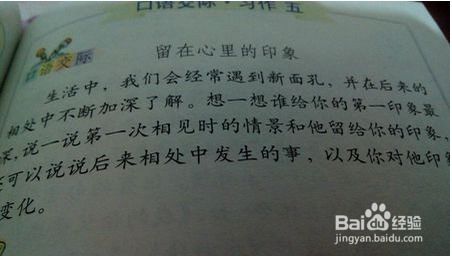 口语交际·习作五
口语交际
留在心里的印象
生活中，我们会经常遇到新面孔，并在后来的
相处中不断加深了解。想一想谁给你的第一印象最
深，说一说第一次相见时的情景和他留给你的印象，
还可以说说后来相处中发生的事，以及你对他印象
变化。
Baidu 经验
jingyan.baidu.com